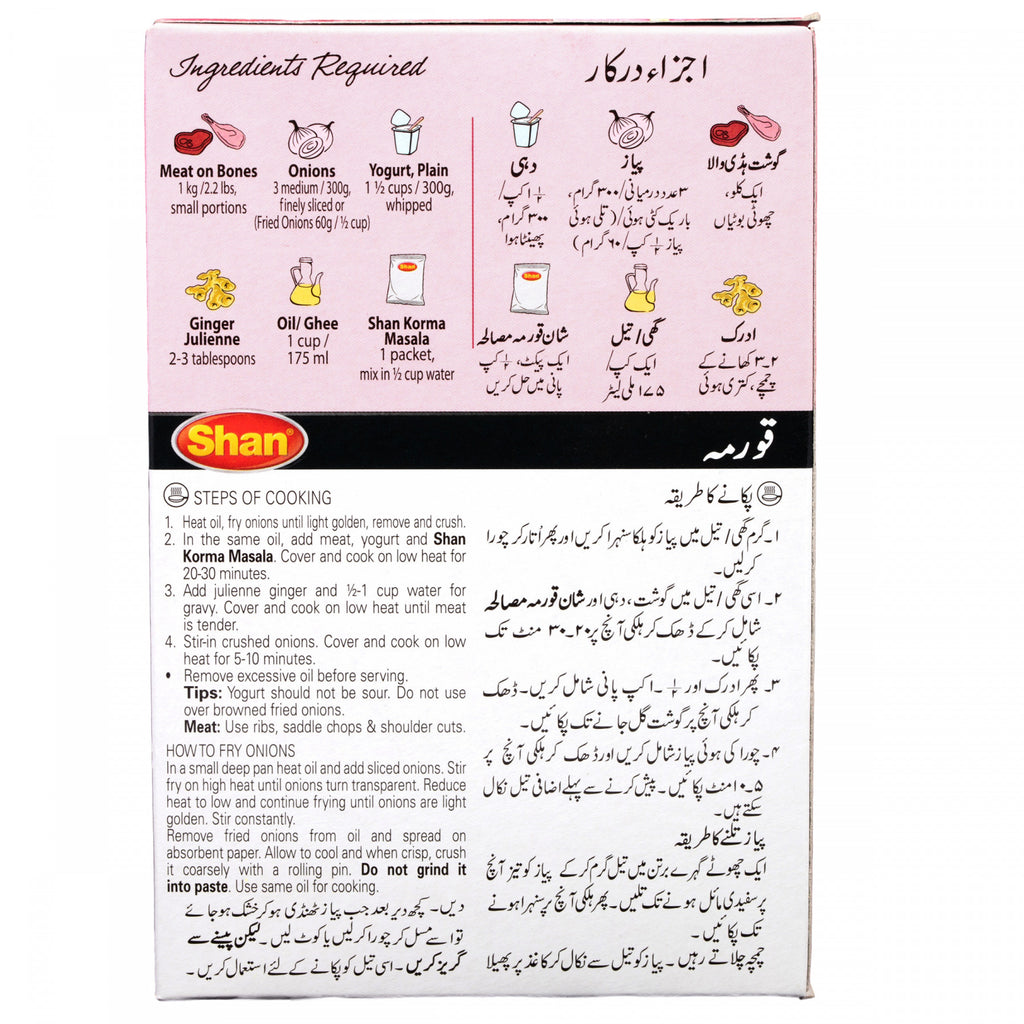 Ingredients Required
Meat on Bones
1 kg /2.2 lbs,
small portions
Onions
3 medium / 300g,
finely sliced or
(Fried Onions 60g / ½ cup)
Yogurt, Plain
1 ½ cups / 300g,
whipped
Ginger
Julienne
2-3 tablespoons
Oil/ Ghee
1 cup /
175 ml
Shan
Shan Korma
Masala
1 packet,
mix in ½ cup water
اجزاء درکار
گوشت ہڈی والا
ایک کلو،
چھوٹی بوٹیاں
پیاز
۳ عدد درمیانی/ ۳۰۰ گرام،
باریک کٹی ہوئی/ (تلی ہوئی
پیاز ½ کپ/ ۶۰ گرام)
دہی
½۱ کپ/
۳۰۰ گرام،
پھینٹا ہوا
ادرک
۲۔۳ کھانے کے
چمچے، کتری ہوئی
گھی/ تیل
ایک کپ/
۱۷۵ ملی لیٹر
Shan
شان قورمہ مصالحہ
ایک پیکٹ، ½ کپ
پانی میں حل کریں
Shan®
قورمہ
STEPS OF COOKING
1. Heat oil, fry onions until light golden, remove and crush.
2. In the same oil, add meat, yogurt and Shan
Korma Masala. Cover and cook on low heat for
20-30 minutes.
3. Add julienne ginger and ½-1 cup water for
gravy. Cover and cook on low heat until meat
is tender.
4. Stir-in crushed onions. Cover and cook on low
heat for 5-10 minutes.
• Remove excessive oil before serving.
Tips: Yogurt should not be sour. Do not use
over browned fried onions.
Meat: Use ribs, saddle chops & shoulder cuts.
HOW TO FRY ONIONS
In a small deep pan heat oil and add sliced onions. Stir
fry on high heat until onions turn transparent. Reduce
heat to low and continue frying until onions are light
golden. Stir constantly.
Remove fried onions from oil and spread on
absorbent paper. Allow to cool and when crisp, crush
it coarsely with a rolling pin. Do not grind it
into paste. Use same oil for cooking.
پکانے کا طریقہ
۱۔ گرم گھی/ تیل میں پیاز کو ہلکا سنہرا کریں اور پھر اُتار کر چورا
کرلیں۔
۲۔ اسی گھی/ تیل میں گوشت، دہی اور شان قورمہ مصالحہ
شامل کرکے ڈھک کر ہلکی آنچ پر ۲۰۔۳۰ منٹ تک
پکائیں۔
۳۔ پھر ادرک اور ½ ۔۱ کپ پانی شامل کریں۔ ڈھک
کر ہلکی آنچ پر گوشت گل جانے تک پکائیں۔
۴۔ چورا کی ہوئی پیاز شامل کریں اور ڈھک کر ہلکی آنچ پر
۵۔۱۰ منٹ پکائیں۔ پیش کرنے سے پہلے اضافی تیل نکال
سکتے ہیں۔
پیاز تلنے کا طریقہ
ایک چھوٹے گہرے برتن میں تیل گرم کرکے پیاز کو تیز آنچ
پر سفیدی مائل ہونے تک تلیں۔ پھر ہلکی آنچ پر سنہرا ہونے
تک پکائیں۔
چمچہ چلاتے رہیں۔ پیاز کو تیل سے نکال کر کاغذ پر پھیلا
دیں۔ کچھ دیر بعد جب پیاز ٹھنڈی ہو کر خشک ہوجائے
تو اسے مسل کر چورا کرلیں یا کوٹ لیں۔ لیکن پیسنے سے
گریز کریں۔ اسی تیل کو پکانے کے لئے استعمال کریں۔